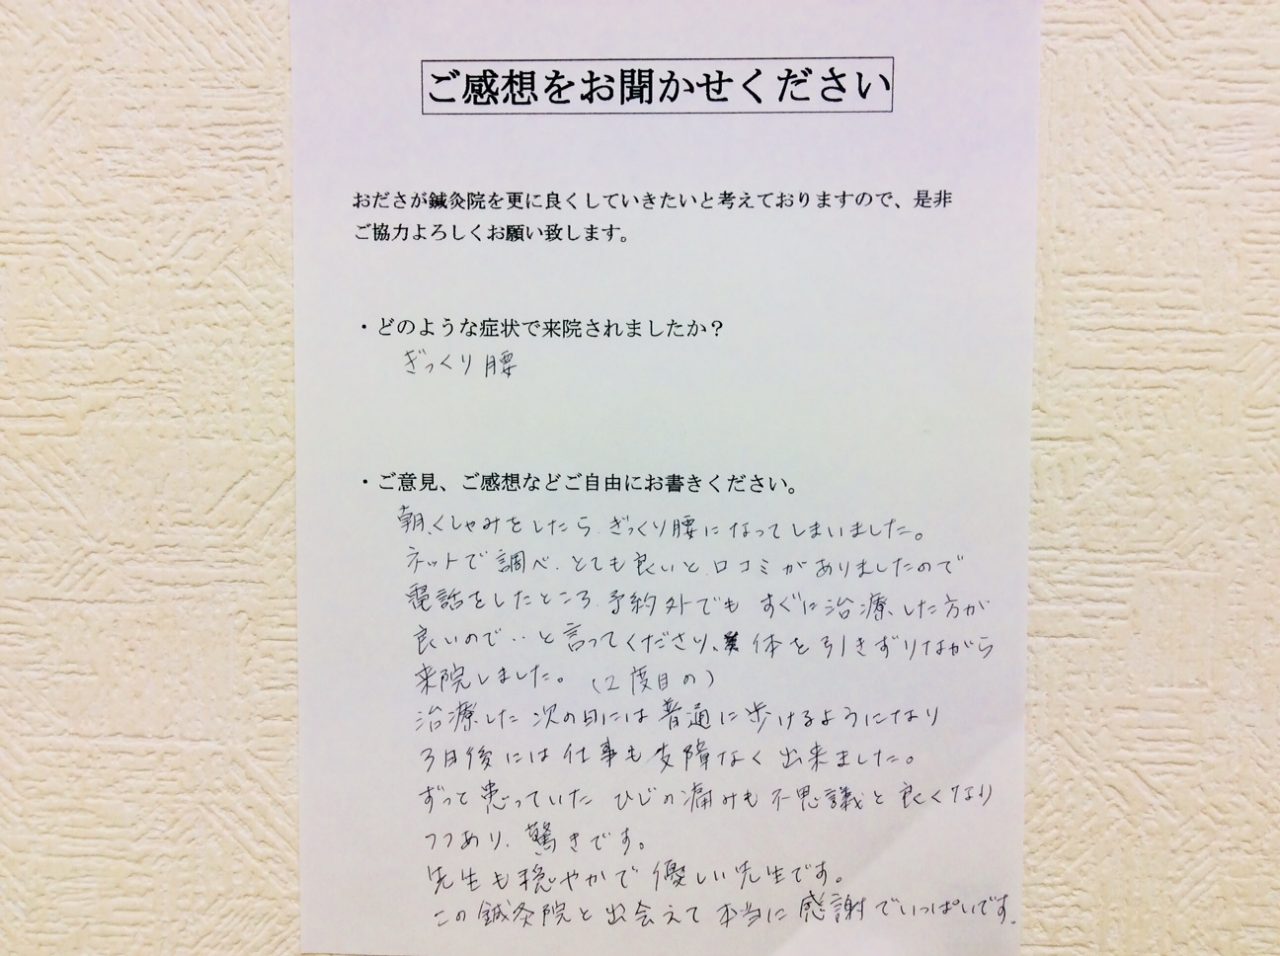 ご感想をお聞かせください
おださが鍼灸院を更に良くしていきたいと考えておりますので、是非
ご協力よろしくお願い致します。
・どのような症状で来院されましたか？
ぎっくり腰
・ご意見、ご感想などご自由にお書きください。
朝、くしゃみをしたら、ぎっくり腰になってしまいました。
ネットで調べ、とても良いと口コミがありましたので
電話をしたところ、予約外でもすぐに治療した方が
良いので‥と言ってくださり、体を引きずりながら
来院しました。（2度目の）
治療した次の日には普通に歩けるようになり
3日後には仕事も支障なく出来ました。
ずっと患っていたひじの痛みも不思議と良くなり
つつあり、驚きです。
先生も穏やかで優しい先生です。
この鍼灸院と出会えて本当に感謝でいっぱいです。